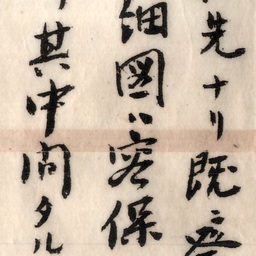 先ナリ既ニ
細図ハ容保
其中間タル